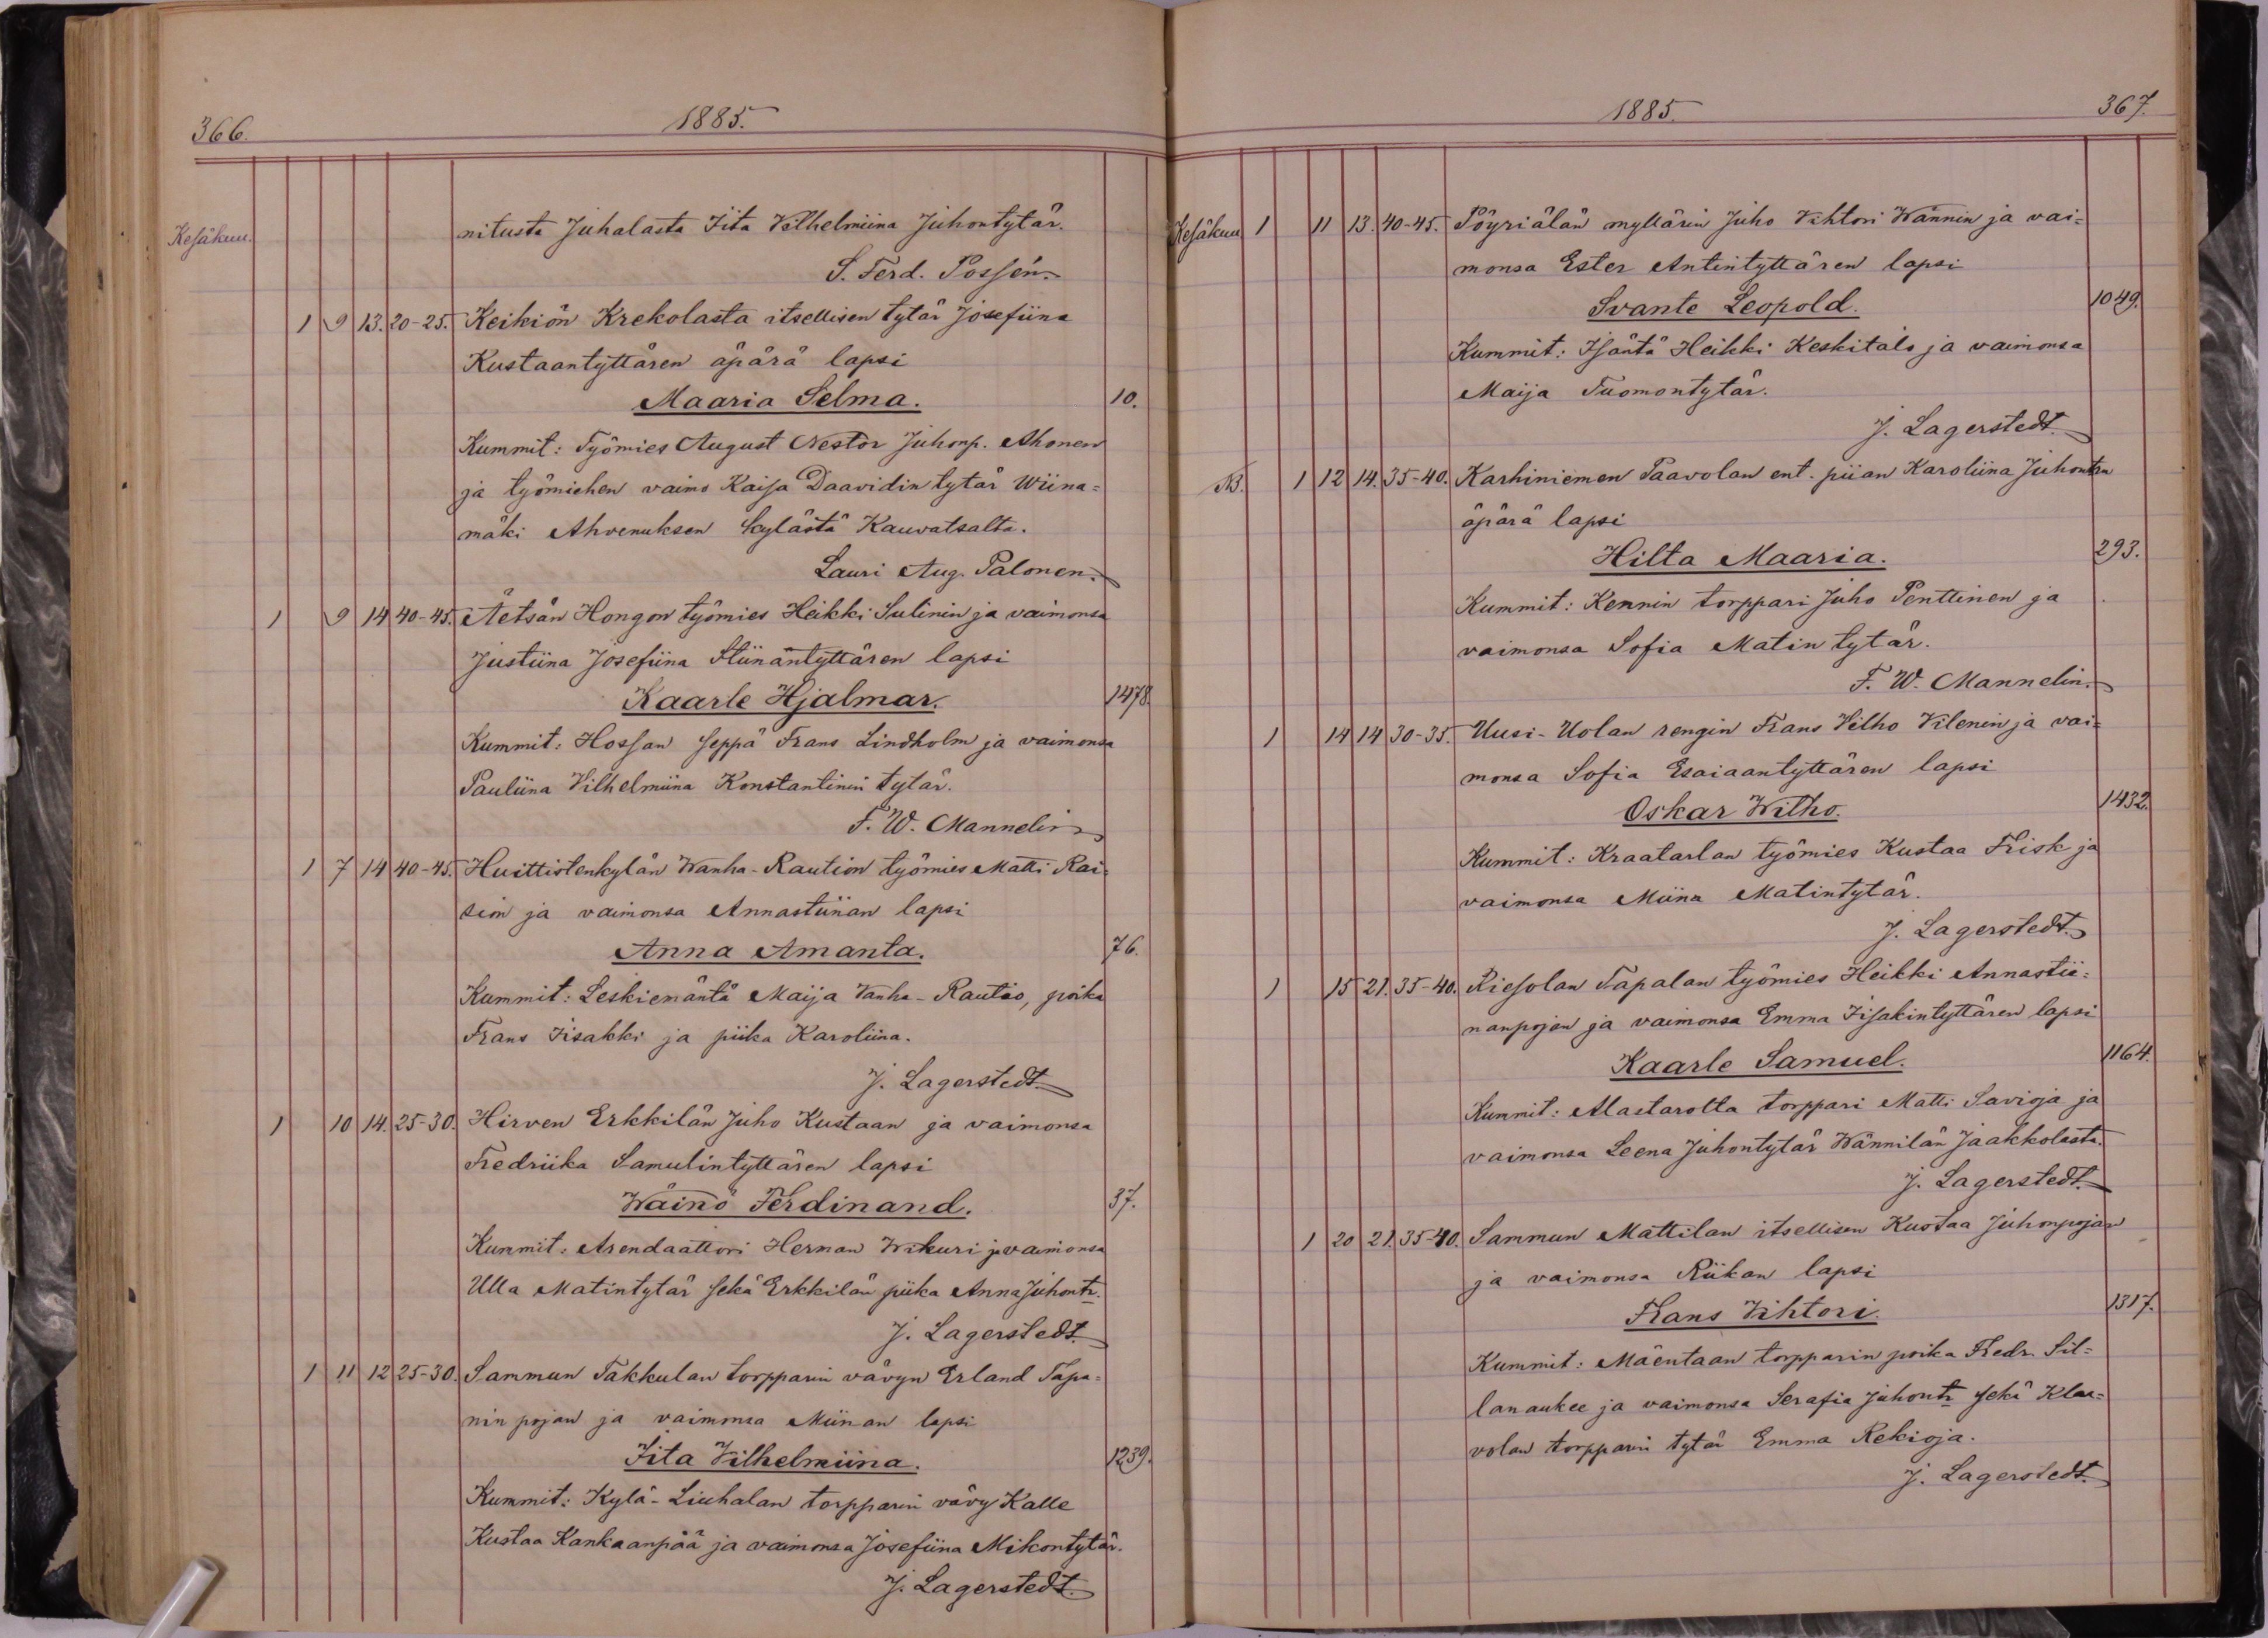 366.
1885.
Kesäkuu.
nitusta Juhalasta Iita Vilhelmiina Juhontytär.
S. Ferd. Possén.
1 9 13. 20-25. Keikiön Krekolasta itsellisen tytär Josefiina
Kustaantyttären äpärä lapsi
Maaria Selma. 10.
Kummit: Työmies August Nestor Juhonp. Ahonen
ja työmiehen vaimo Kaisa Daavidintytär Wiina=
mäki Ahvenuksen kylästä Kauvatsalta.
Lauri Aug. Palonen.
1 9 14 40-45. Äetsän Hongon työmies Heikki Sulinin ja vaimonsa
Justiina Josefiina Stiinantyttären lapsi
Kaarle Hjalmar. 1478.
Kummit: Hossan seppä Frans Lindholm ja vaimonsa
Pauliina Vilhelmiina Konstantinin tytär.
F. W. Mannelin
1 7 14 40-45. Huittistenkylän Wanha-Raution työmies Matti Rai=
sion ja vaimonsa Annastiinan lapsi
Anna Amanta. 76.
Kummit: Leskiemäntä Maija Vanha-Rautio, poika
Frans Iisakki ja piika Karoliina.
J. Lagerstedt.
1 10 14. 25-30. Hirven Erkkilän Juho Kustaan ja vaimonsa
Fredriika Samulintyttären lapsi
Wäinö Ferdinand. 37.
Kummit: Arendaattori Herman Wikuri ja vaimonsa
Ulla Matintytär sekä Erkkilän piika Anna Juhontr.
J. Lagerstedt.
1 11 12 25-30. Sammun Takkulan torpparin vävyn Erland Tapa=
nin pojan ja vaimonsa Miinan lapsi
Iita Vilhelmiina. 1239.
Kummit: Kylä-Liuhalan torpparin vävy Kalle
Kustaa Kankaanpää ja vaimonsa Josefiina Mikontytär.
J. Lagerstedt.
1885.
367.
Kesäkuu 1 11 13. 40-45. Pöyriälän myllärin Juho Vihtori Wännin ja vai=
monsa Ester Antintyttären lapsi
Svante Leopold. 1049.
Kummit: Isäntä Heikki Keskitalo ja vaimonsa
Maija Tuomontytär.
J. Lagerstedt.
NB. 1 12 14. 35-40. Karhiniemen Paavolan ent. piian Karoliina Juhontrn
äpärä lapsi
Hilta Maaria. 293.
Kummit: Kennin torppari Juho Penttinen ja
vaimonsa Sofia Matin tytär.
F. W. Mannelin.
1 14 14 30-35. Uusi-Uolan rengin Frans Vilho Vilenin ja vai=
monsa Sofia Esaiaantyttären lapsi
Oskar Wilho. 1432.
Kummit: Kraatarlan työmies Kustaa Frisk ja
vaimonsa Miina Matintytär.
J. Lagerstedt.
1 15 21. 35-40. Riesolan Tapalan työmies Heikki Annastii=
nanpojan ja vaimonsa Emma Iisakintyttären lapsi
Kaarle Samuel. 1164.
Kummit: Alastarolta torppari Matti Savioja ja
vaimonsa Leena Juhontytär Wännilän Jaakkolasta.
J. Lagerstedt.
1 20 21. 35-40. Sammun Mattilan itsellisen Kustaa Juhonpojan
ja vaimonsa Riikan lapsi
Frans Vihtori. 1317.
Kummit: Mäentaan torpparin poika Fredr. Sil=
lanaukee ja vaimonsa Serafia Juhontr sekä Klaa=
volan torpparin tytär Emma Rekioja.
J. Lagerstedt.